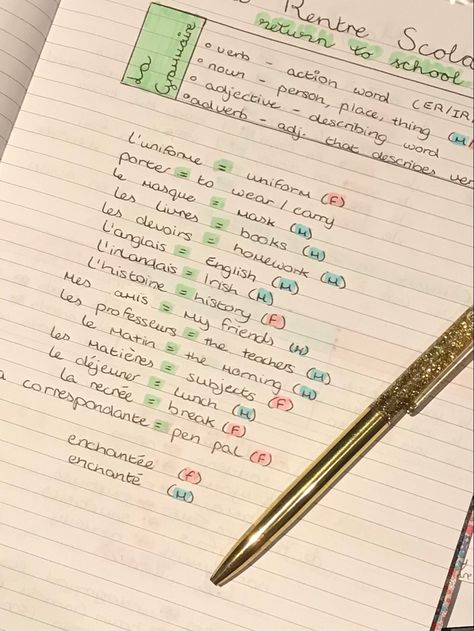 Rentre Scola
return to school
La Grammaire
• verb - action word (ER/IR/
• noun - person, place, thing (M/
• adjective - describing word
• adverb - adj. that describes ver
L'uniforme = uniform (F)
porter = to wear/carry
le masque = mask (M)
les livres = books (M)
les devoirs = homework (M)
L'anglais = English (M)
L'irlandais = Irish (M)
L'histoire = history (F)
Mes amis = My friends (M)
les professeurs = the teachers (M)
le Matin = the Morning (M)
les Matières = subjects (F)
le déjeuner = lunch (M)
la recrée = break (F)
a correspondante = pen pal (F)
enchantée (f)
enchanté (M)